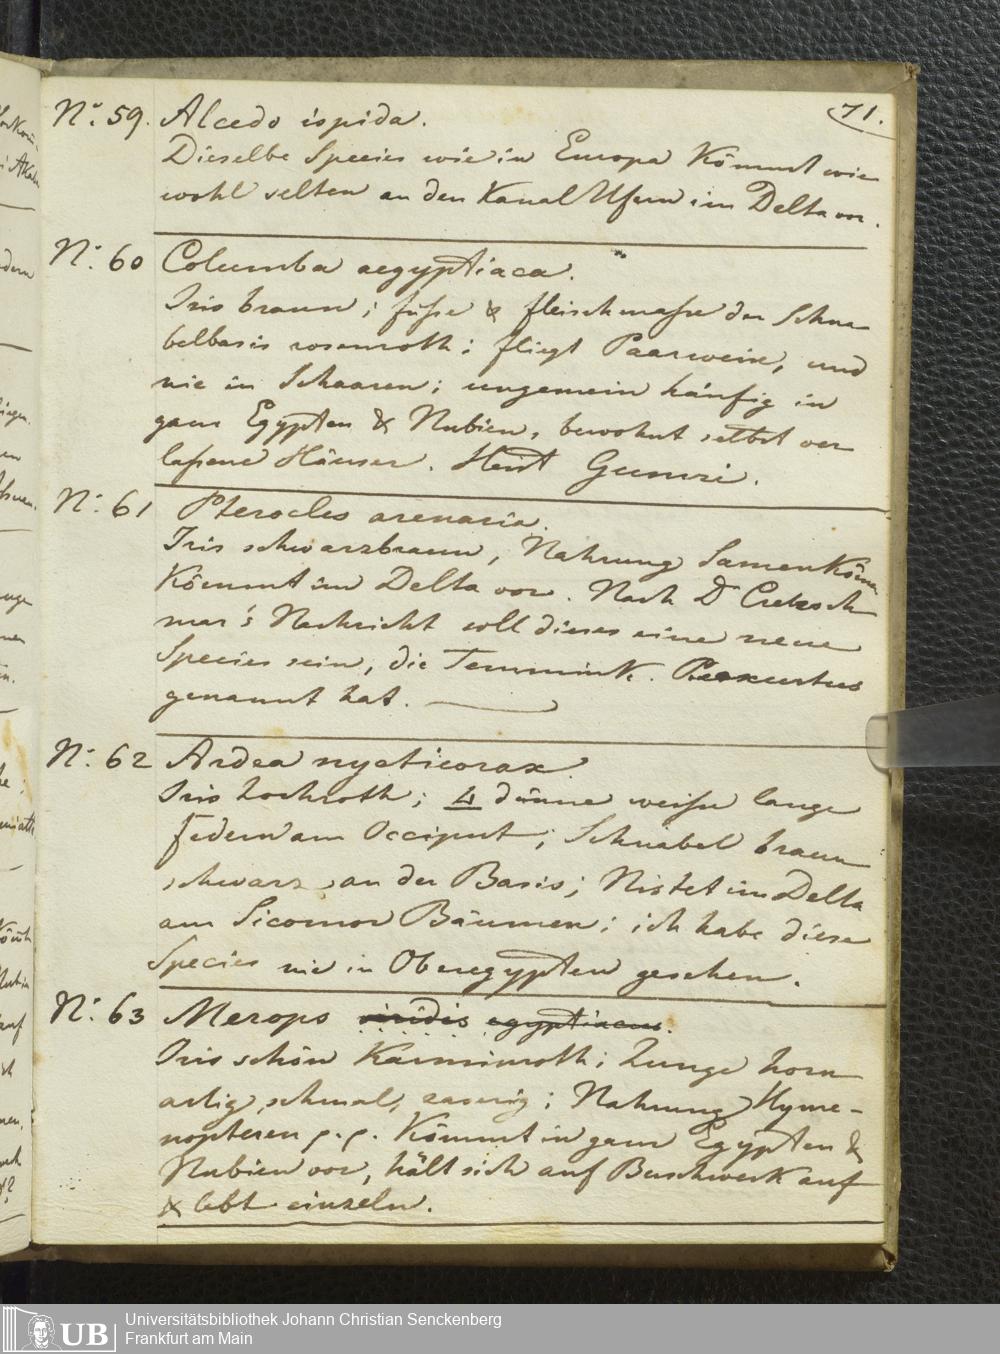 71.
No. 59. Alcedo ispida.
Dieselbe Species wie in Europa Kömmt wie
wohl selten an den Kanal Ufern im Delta vor.
No. 60 Columba aegyptiaca.
Iris braun; füße & fleischmaße der Schna
belbasis rosenroth; fliegt Paarweise, und
nie in Schaaren; ungemein häufig in
ganz Egypten & Nubien, bewohnt selbst ver
laßene Häuser. Heist Gumri.
No. 61 Pterocles arenaria.
Iris schwarzbraun, Nahrung Samen Körner
Kömmt im Delta vor. Nach Dr Cretzsch
mar's Nachricht soll dieses eine neue
Species sein, die Temmink.
genannt hat.
No. 62 Ardea nycticorax.
Iris hochroth; 4 dünne weiße lange
Federn am Occiput; Schnabel braun
schwarz, an der Basis; Nistet im Delta
am Sicomor Bäumen; ich habe diese
Species nie in Oberegypten gesehen.
No. 63 Merops viridis egyptiacus.
Iris schön Karminroth; Zunge horn
artig, schmal, zaserig; Nahrung Hyme-
nopteren p.p. Kömmt in ganz Egypten &
Nubien vor, hält sich auf Buschwerk auf
& lebt einzeln.
UB
Universitätsbibliothek Johann Christian Senckenberg
Frankfurt am Main